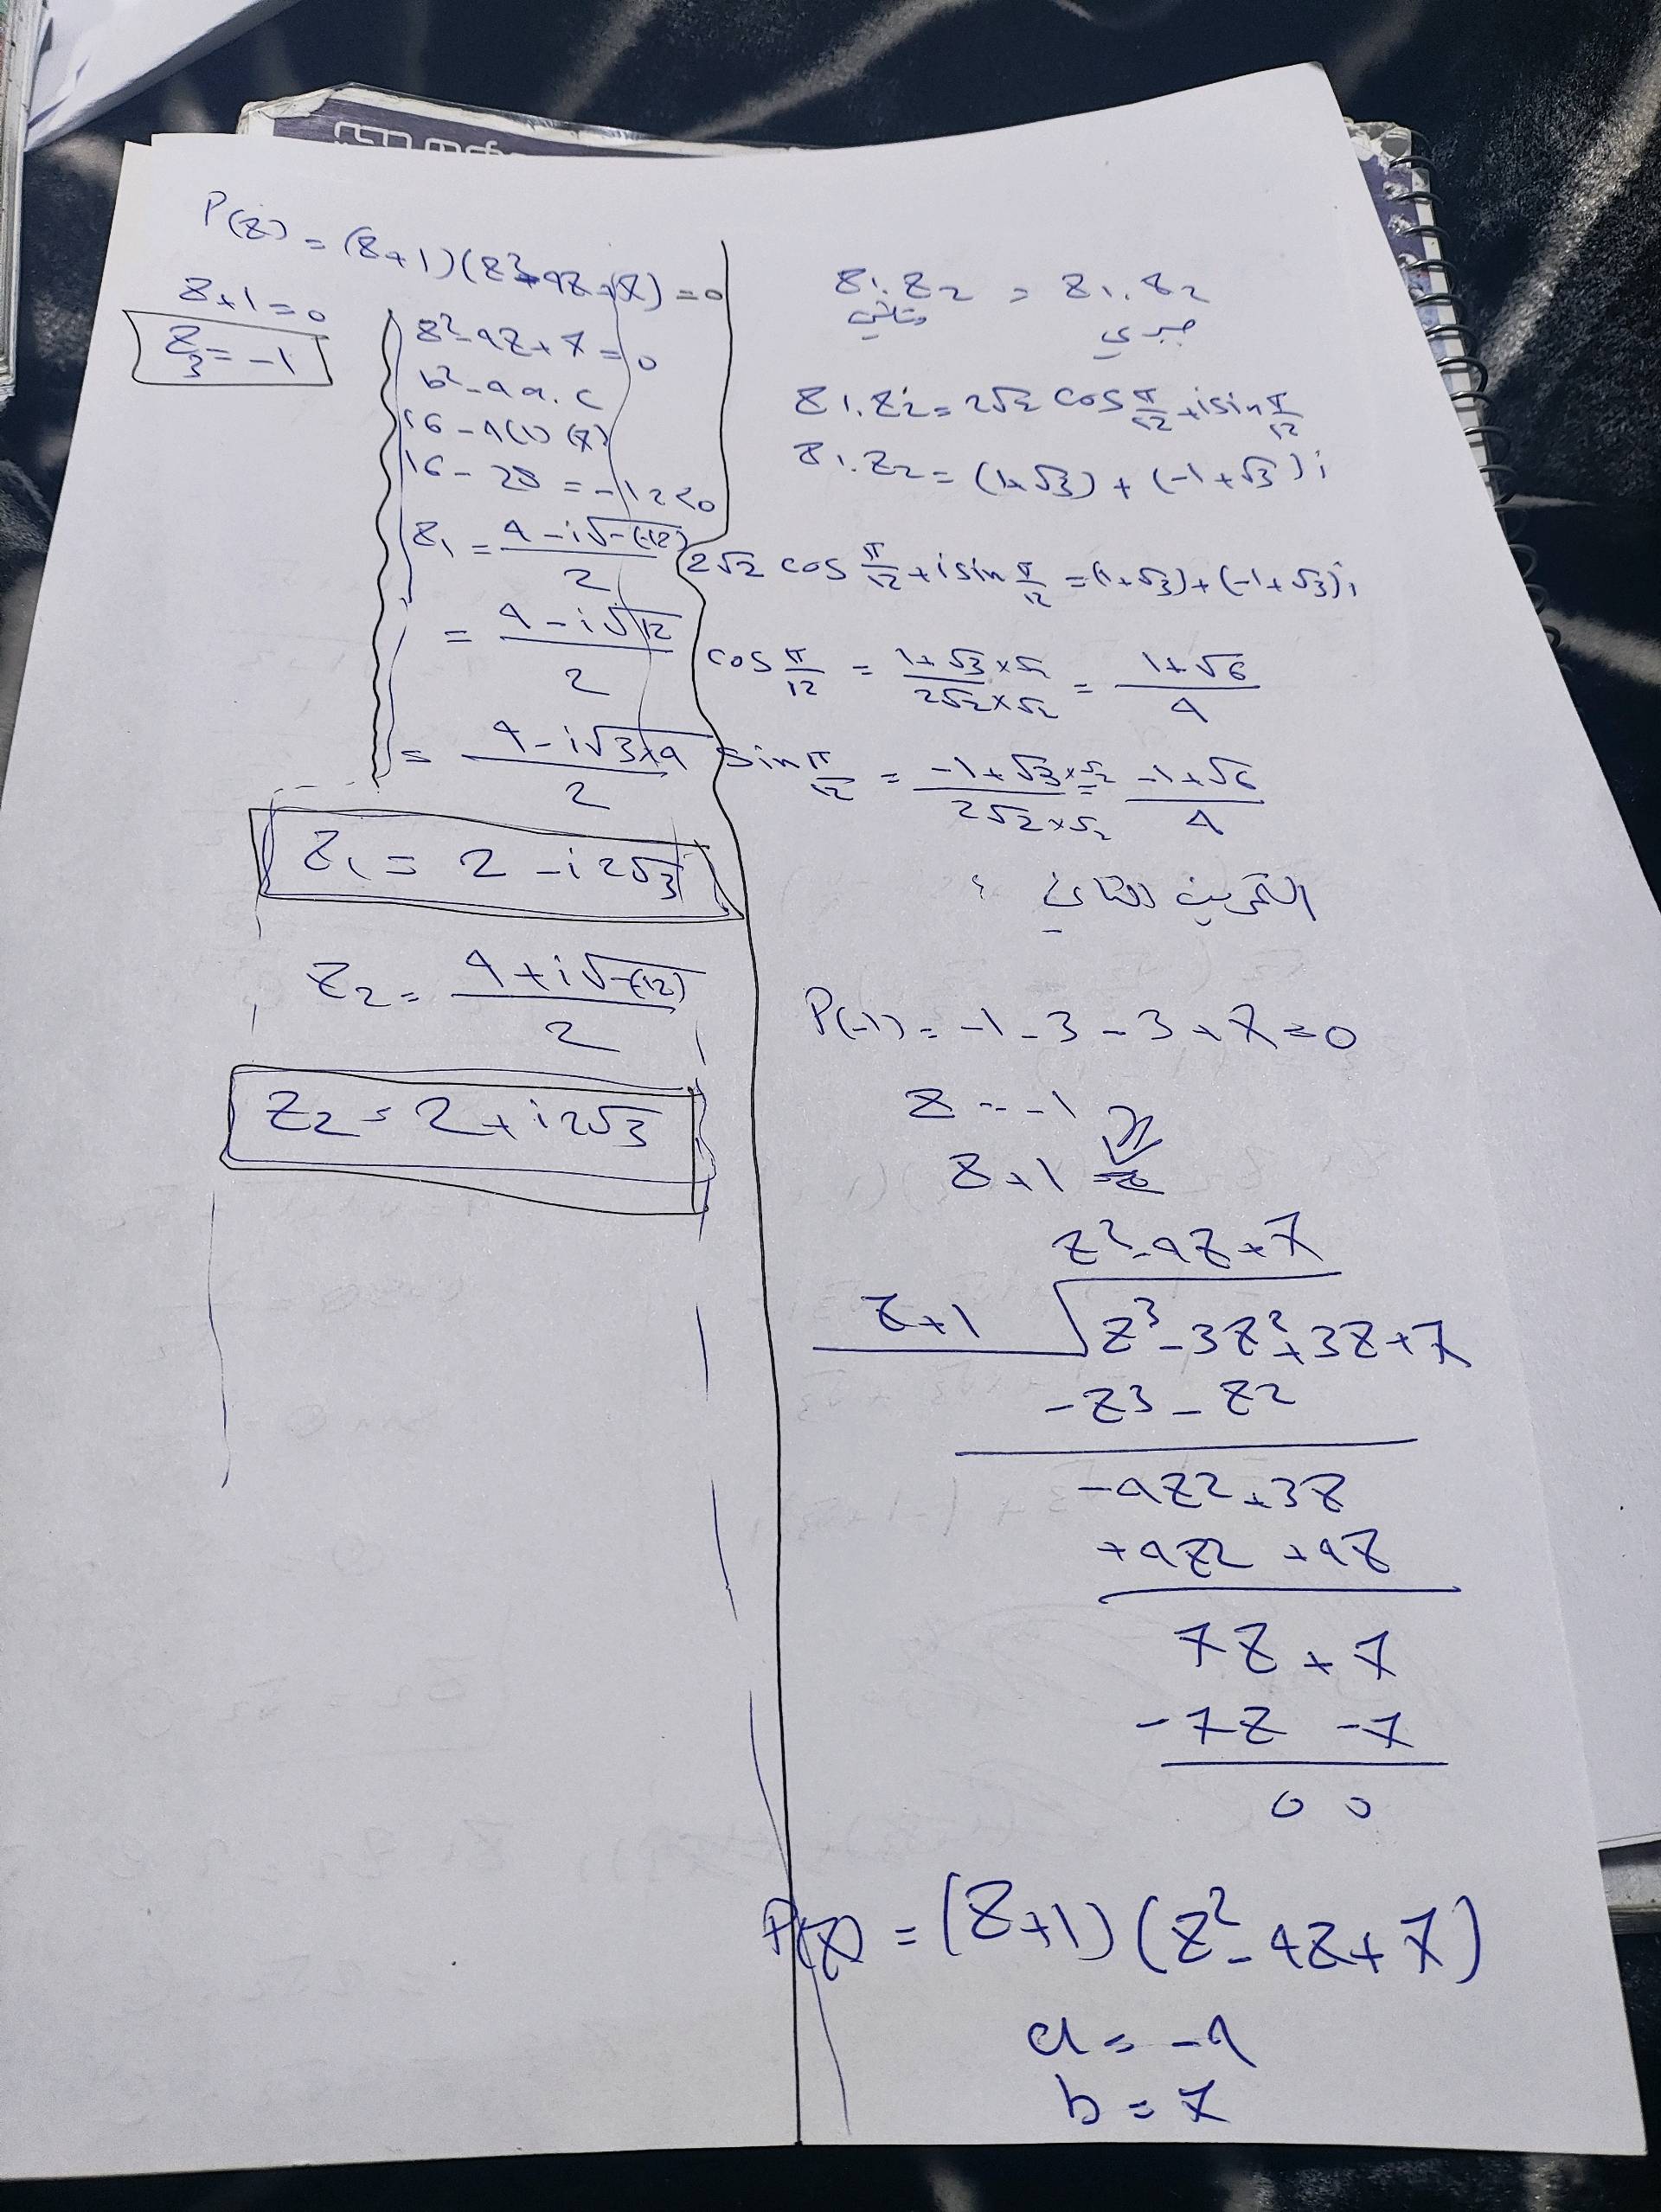 P(z) = (z+1)(z²-4z+7) = 0
z+1=0
z₃ = -1
z²-4z+7=0
b²-4a.c
16-4(1)(7)
16-28 = -12<0
z₁ = (4-i√-(-12))/2
= (4-i√12)/2
= (4-i√3×4)/2
z₁ = 2-i2√3
z₂ = (4+i√-(-12))/2
z₂ = 2+i2√3
z₁.z₂ = z₁.z₂
مثلثي جبري
z₁.z₂ = 2√2 cos π/12 + i sin π/12
z₁.z₂ = (1+√3) + (-1+√3)i
2√2 cos π/12 + i sin π/12 = (1+√3) + (-1+√3)i
cos π/12 = (1+√3×√2)/(2√2×√2) = (1+√6)/4
sin π/12 = (-1+√3×√2)/(2√2×√2) = (-1+√6)/4
التمرين الثاني :
P(-1) = -1-3-3+7=0
z = -1
z+1
z²-4z+7
z+1 √z³-3z²+3z+7
-z3-z2
-4z2+3z
+4z2+4z
7z+7
-7z -7
0 0
P(z) = (z+1)(z²-4z+7)
a = -4
b = 7